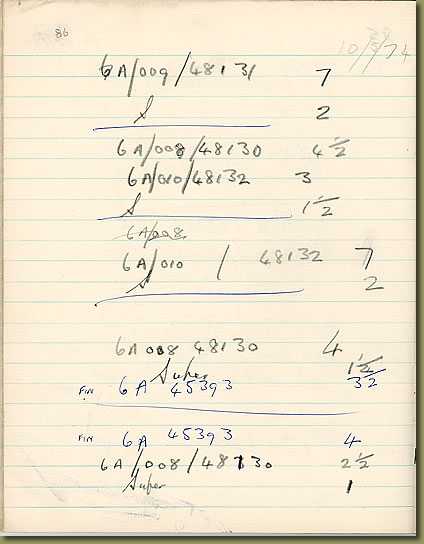 86
10/5/74
6A/009/48131 7
S 2
6A/008/48130 4 1/2
6A/010/48132 3
S 1 1/2
6A/008
6A/010 / 48132 7
S 2
6A 008 48130 4
Super 1 1/2
FIN 6A 45393
FIN 6A 45393 4
6A/008/48130 2 1/2
Super 1